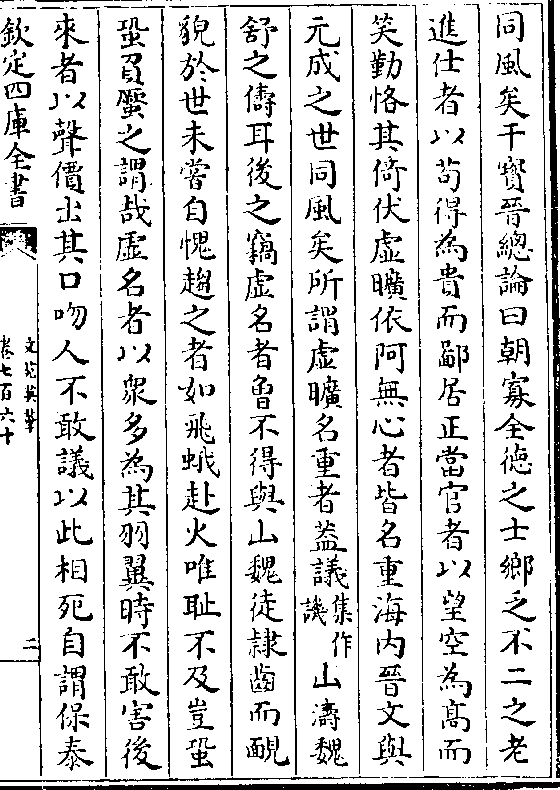 同風矣干寳晉總論曰朝寡全徳之士鄉乏不二之老
進仕者以茍得為貴而鄙居正當官者以望空為髙而
笑勤恪其倚伏虚曠依阿無心者皆名重海内晉文與
元成之世同風矣所謂虚曠名重者葢議集作譏山濤魏
舒之儔耳後之竊虚名者曽不得與山魏徒隷齒而靦
貌於世未嘗自愧趨之者如飛蛾赴火唯耻不及豈蛩
蛩負蟨之謂哉虚名者以衆多為其羽翼時不敢害後
來者以聲價出其口吻人不敢議以此相死自謂保泰
欽定四庫全書
文苑英華
卷七百六十
二